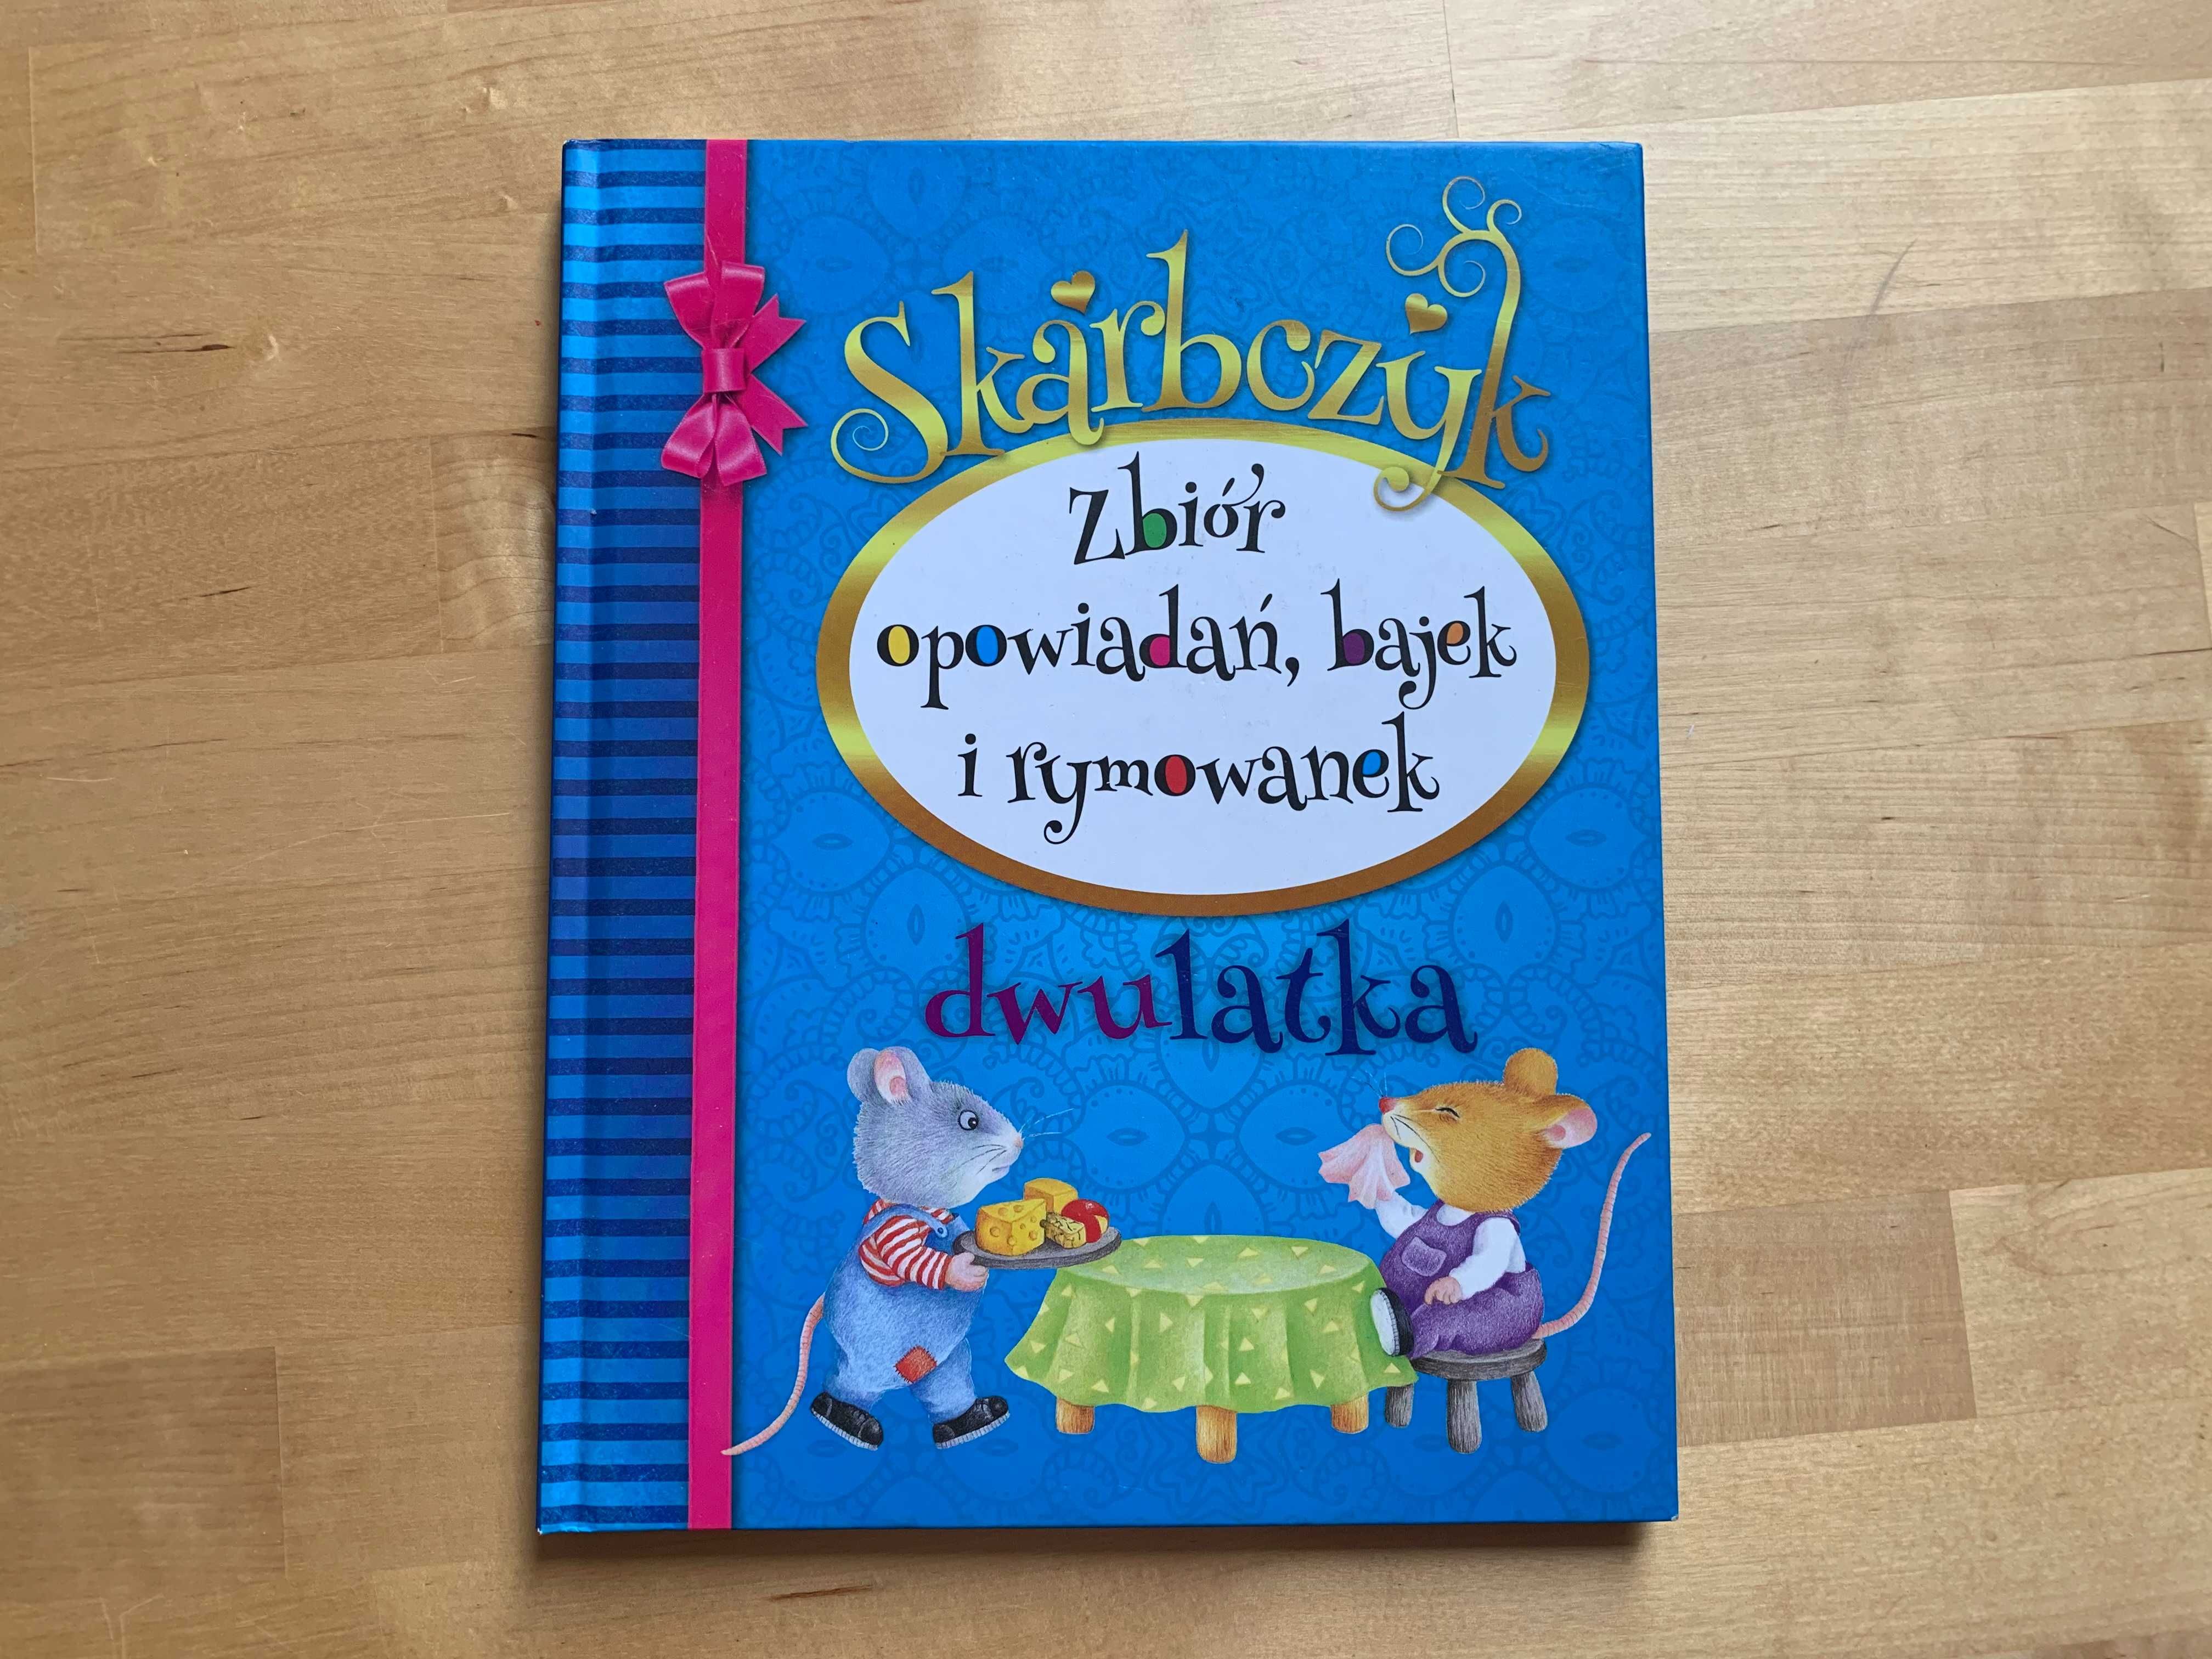 Skarbczyk
Zbiór
opowiadań, bajek
i rymowanek
dwulatka